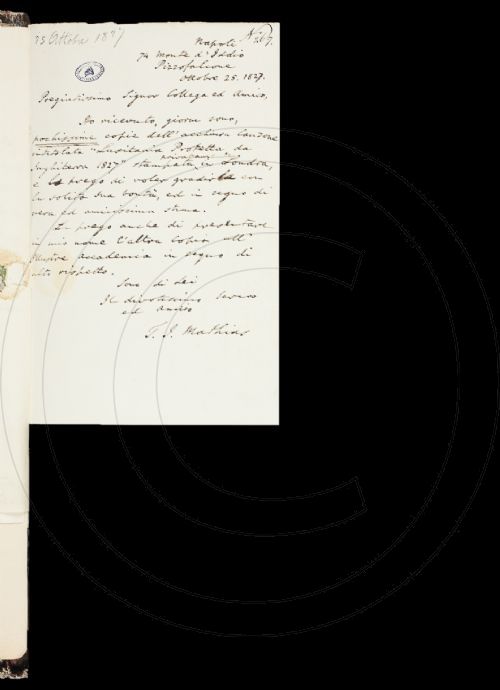 25 Ottobre 1827
Napoli
74 Monte d'Iddio
Pizzofalcone
Ottobre 25. 1827.
Pregiatissimo Signor Collega ed Amico,
Ho ricevuto, giorni sono,
pochissime copie dell' acclusa Canzone
intitolata "Lusitania Protetta da
Inghilterra 1827" stampata privatam. in Londra,
e la prego di voler gradirla con
la solita sua bontà, ed in segno di
vera ed amicissima stima.
La prego anche di presentare
in mio nome l'altra copia all'
illustre Accademia in segno di
alto rispetto.
Sono di Lei
Il divotissimo servo
ed amico
T. J. Mathias